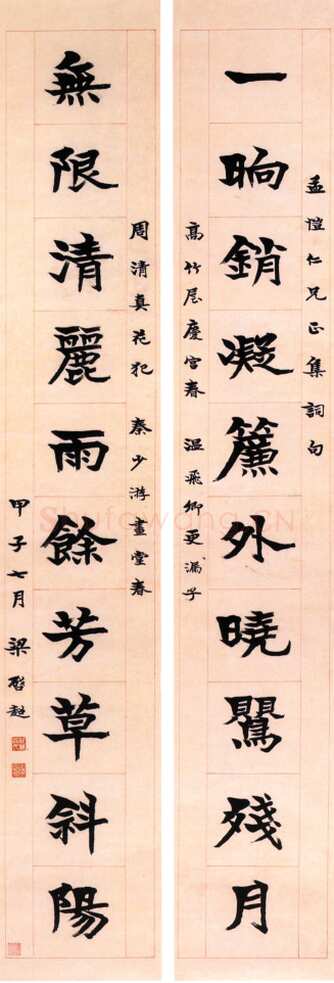 孟愷仁兄正集詞句
一晌銷凝簾外曉鸎殘月
高竹屋慶宮春 溫飛卿更漏子
周清真花犯 秦少游畫堂春
無限清麗雨餘芳草斜陽
甲子七月 梁啓超
Shufawang.CN